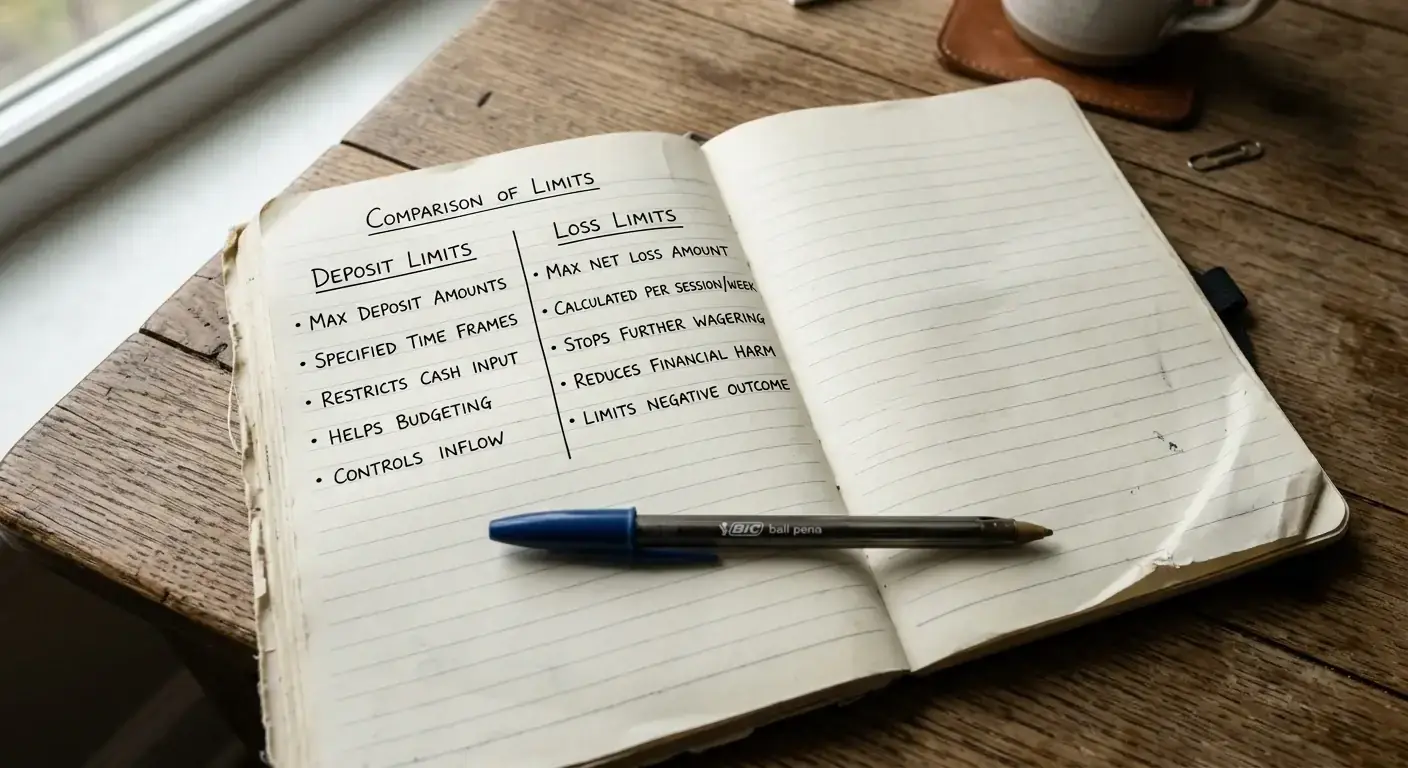 COMPARISON OF LIMITS
DEPOSIT LIMITS
• MAX DEPOSIT AMOUNTS
• SPECIFIED TIME FRAMES
• RESTRICTS CASH INPUT
• HELPS BUDGETING
• CONTROLS INFLOW
LOSS LIMITS
• MAX NET LOSS AMOUNT
• CALCULATED PER SESSION/WEEK
• STOPS FURTHER WAGERING
• REDUCES FINANCIAL HARM
• LIMITS NEGATIVE OUTCOME
BIC ball pena